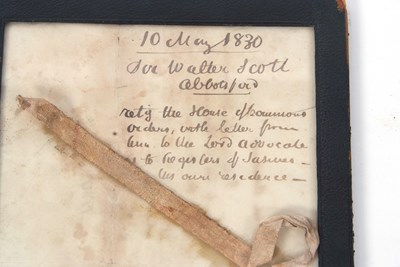 10 May 1830
Sir Walter Scott
Abbotsford
retg the House of Commons
orders, with letter from
him to the Lord Advocate
as to Registers of Sasines —
his own residence —